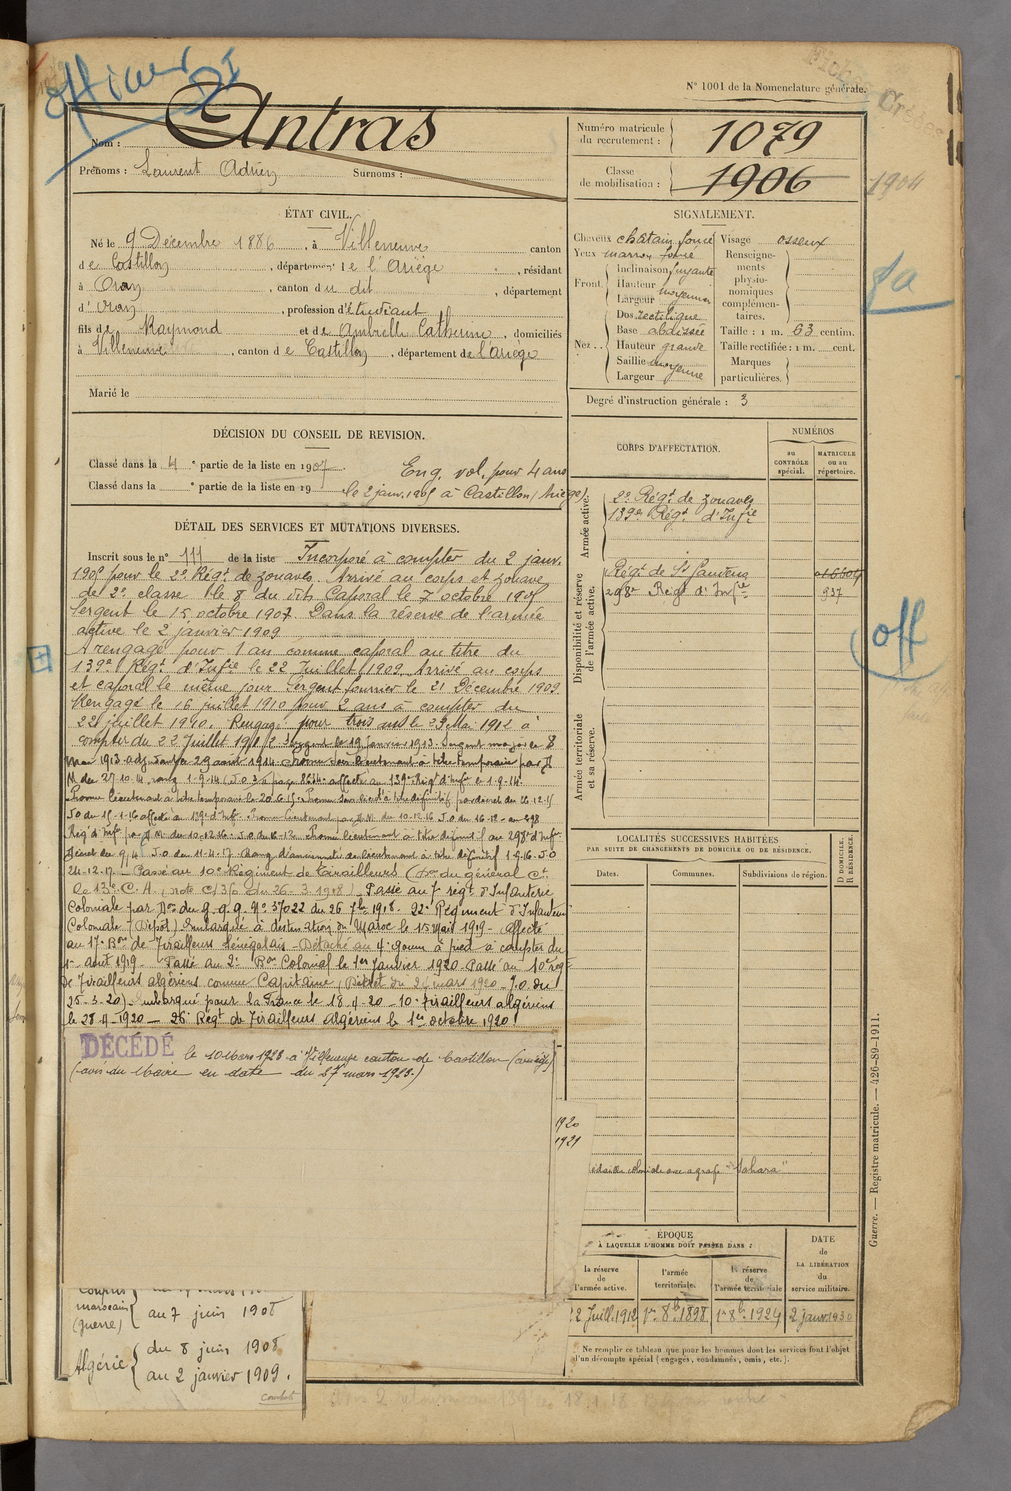 officier
DI
N° 1001 de la Nomenclature générale.
Nom : Antras
Prénoms : Laurent Adrien Surnoms :
Numéro matricule du recrutement : 1079
Classe de mobilisation : 1906
1904
ÉTAT CIVIL.
Né le 9 Décembre 1886, à Villeneuve canton
de Castillon, département de l'Ariège, résidant
à Oran, canton du dit, département
d'Oran, profession d'étudiant
fils de Raymond et de Catherine, domiciliés
à Villeneuve, canton de Castillon, département de l'Ariège
Marié le
SIGNALEMENT.
Cheveux chatain foncé
Yeux marron foncé
Front. Inclinaison fuyante
Hauteur
Largeur moyenne
Nez... Dos rectiligne
Base abaissée
Hauteur grande
Saillie moyenne
Largeur moyenne
Visage osseux
Renseignements physionomiques complémentaires.
Taille : 1 m. 63 centim.
Taille rectifiée : 1 m. cent.
Marques particulières.
Degré d'instruction générale : 3
DÉCISION DU CONSEIL DE REVISION.
Classé dans la 4e partie de la liste en 1907. Eng. vol. pour 4 ans
Classé dans la e partie de la liste en 19 le 2 janv. 1905 à Castillon (Ariège)
DÉTAIL DES SERVICES ET MUTATIONS DIVERSES.
Inscrit sous le n° 111 de la liste Incorporé à compter du 2 janv.
1905 pour le 2e Régt de zouaves. Arrivé au corps et zouave
de 2e classe le 8 du dit. Caporal le 7 octobre 1905
Sergent le 15 octobre 1907. Dans la réserve de l'armée
active le 2 janvier 1909
A rengagé pour 1 an comme caporal au titre du
139e Régt d'Infie le 22 Juillet 1909. Arrivé au corps
et caporal le même jour Sergent fourrier le 21 Décembre 1909.
Rengagé le 16 juillet 1910 pour 2 ans à compter du
22 juillet 1910. Rengagé pour trois ans le 29 Mai 1912 à
compter du 22 Juillet 1912. Sergent le 19 Janvier 1913. Sergent major le 8
Mai 1913 adjudant le 29 août 1914 Promu Sous lieutenant à titre temporaire par D
M du 27.10.14 rang 1-9-14 (J.O 30 page 8634 affecté au 139e Régt d'Inf le 1.9.14.
Promu lieutenant à titre temporaire le 20.6.15. Promu Sous lieut à titre définitif par décret du 26-12-15
J.O du 15-1-16 affecté au 139e d'Inf. Promu lieutenant par D.M. du 10-12-16 J.O du 16-12 au 298
Régt d'Inf par D.M. du 10-12-16. J.O du 16-12 Promu lieutenant à titre définitif au 298e d'Inf
Décret du 9/4 J.O du 11-4-17 Rang d'ancienneté de lieutenant à titre définitif J.O
24-12-17. Passé au 10e Régiment de tirailleurs (Don du général Ct
le 13e C.A. (note du 26-3-1918). Passé au 7e régt d'Infanterie
Coloniale par Don du G.Q.G. N° 37022 du 26 7bre 1918. 22e Régiment d'Infanterie
Coloniale (Dépôt) Embarqué à destination du Maroc le 15 Mai 1919 - affecté
au 17e Bon de Tirailleurs Sénégalais - Détaché au 4e goum à pied à compter du
1er août 1919. Passé au 2e Bon Colonial le 1er Janvier 1920. Passé au 10e régt
de Tirailleurs algériens comme Capitaine (Décret du 24 mars 1920 - J.O. du
25-3-20). Embarqué pour la France le 18.4-20 - 10e Tirailleurs algériens
le 28-4-1920 - 26e Régt de Tirailleurs Algériens le 1er octobre 1920
DÉCÉDÉ le 10 Mars 1923 à Villeneuve canton de Castillon (Ariège)
(avis du Maire en date du 27 mars 1923.)
CORPS D'AFFECTATION.
NUMÉROS
au CONTRÔLE spécial.
MATRICULE ou au répertoire.
Armée active.
2e Régt de zouaves
139e Régt d'Infie
Disponibilité et réserve de l'armée active.
Régt de St Gaudens
298e Régt d'Infie 937
Armée territoriale et sa réserve.
off
LOCALITÉS SUCCESSIVES HABITÉES
PAR SUITE DE CHANGEMENTS DE DOMICILE OU DE RÉSIDENCE.
Dates. Communes. Subdivisions de région. D DOMICILE. R RÉSIDENCE.
1920
1921
Médaille coloniale avec agrafe "Sahara"
ÉPOQUE
À LAQUELLE L'HOMME DOIT PASSER DANS :
la réserve de l'armée active.
l'armée territoriale.
la réserve de l'armée territoriale
DATE de LA LIBÉRATION du service militaire.
22 Juill. 1912
1er 8b. 1898
1er 8b. 1924
2 janv. 1930
Ne remplir ce tableau que pour les hommes dont les services font l'objet
d'un décompte spécial (engagés, condamnés, omis, etc.).
marocain
(guerre)
au 7 juin 1908
Algérie
du 8 juin 1908
au 2 janvier 1909.
Guerre. — Registre matricule. — 426-89-1911.